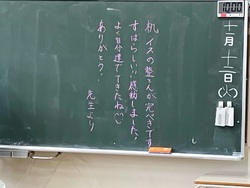 十二月十二日(火)
机、イスの整とんが完ぺきです
すばらしい!感動しました!
よく自分達でできたね
ありがとう!
先生より